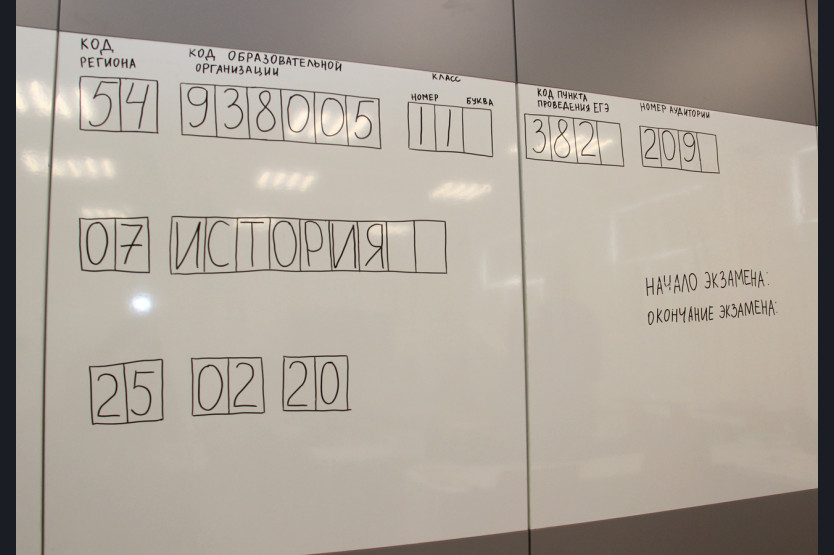 КОД РЕГИОНА
54
КОД ОБРАЗОВАТЕЛЬНОЙ ОРГАНИЗАЦИИ
938005
КЛАСС
НОМЕР БУКВА
11
КОД ПУНКТА ПРОВЕДЕНИЯ ЕГЭ
382
НОМЕР АУДИТОРИИ
209
07 ИСТОРИЯ
НАЧАЛО ЭКЗАМЕНА:
ОКОНЧАНИЕ ЭКЗАМЕНА:
25 02 20